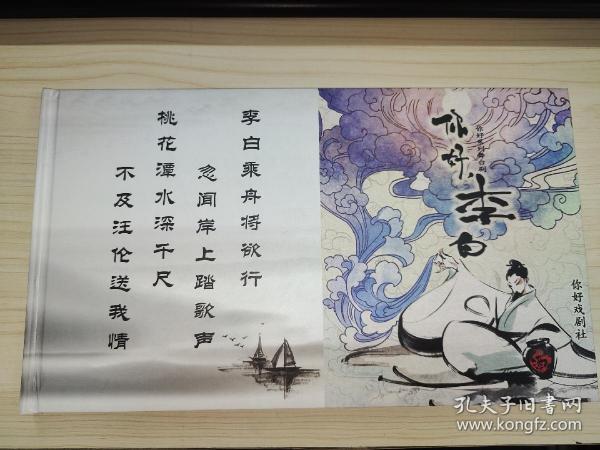 李白乘舟将欲行
忽闻岸上踏歌声
桃花潭水深千尺
不及汪伦送我情
你好，李白
你好系列舞台剧
你好戏剧社
孔夫子旧书网
www.kongfz.com